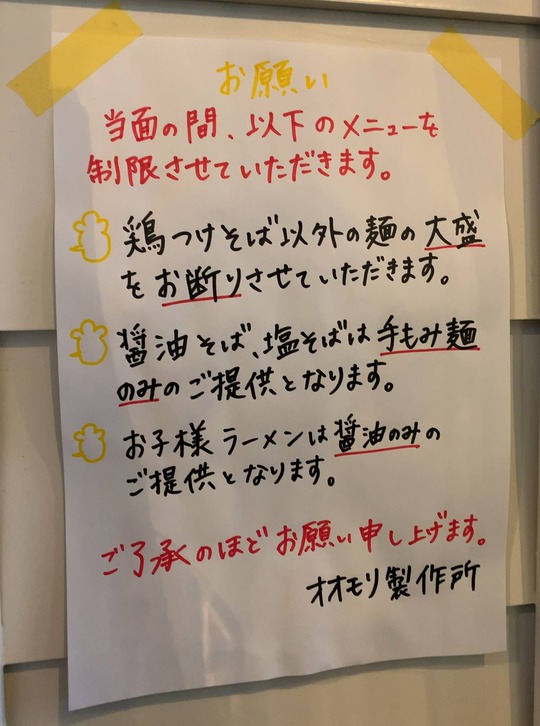 お願い
当面の間、以下のメニューを
制限させていただきます。
鶏つけそば以外の麺の大盛
をお断りさせていただきます。
醤油そば、塩そばは手もみ麺
のみのご提供となります。
お子様ラーメンは醤油のみの
ご提供となります。
ご了承のほどお願い申し上げます。
オオモリ製作所